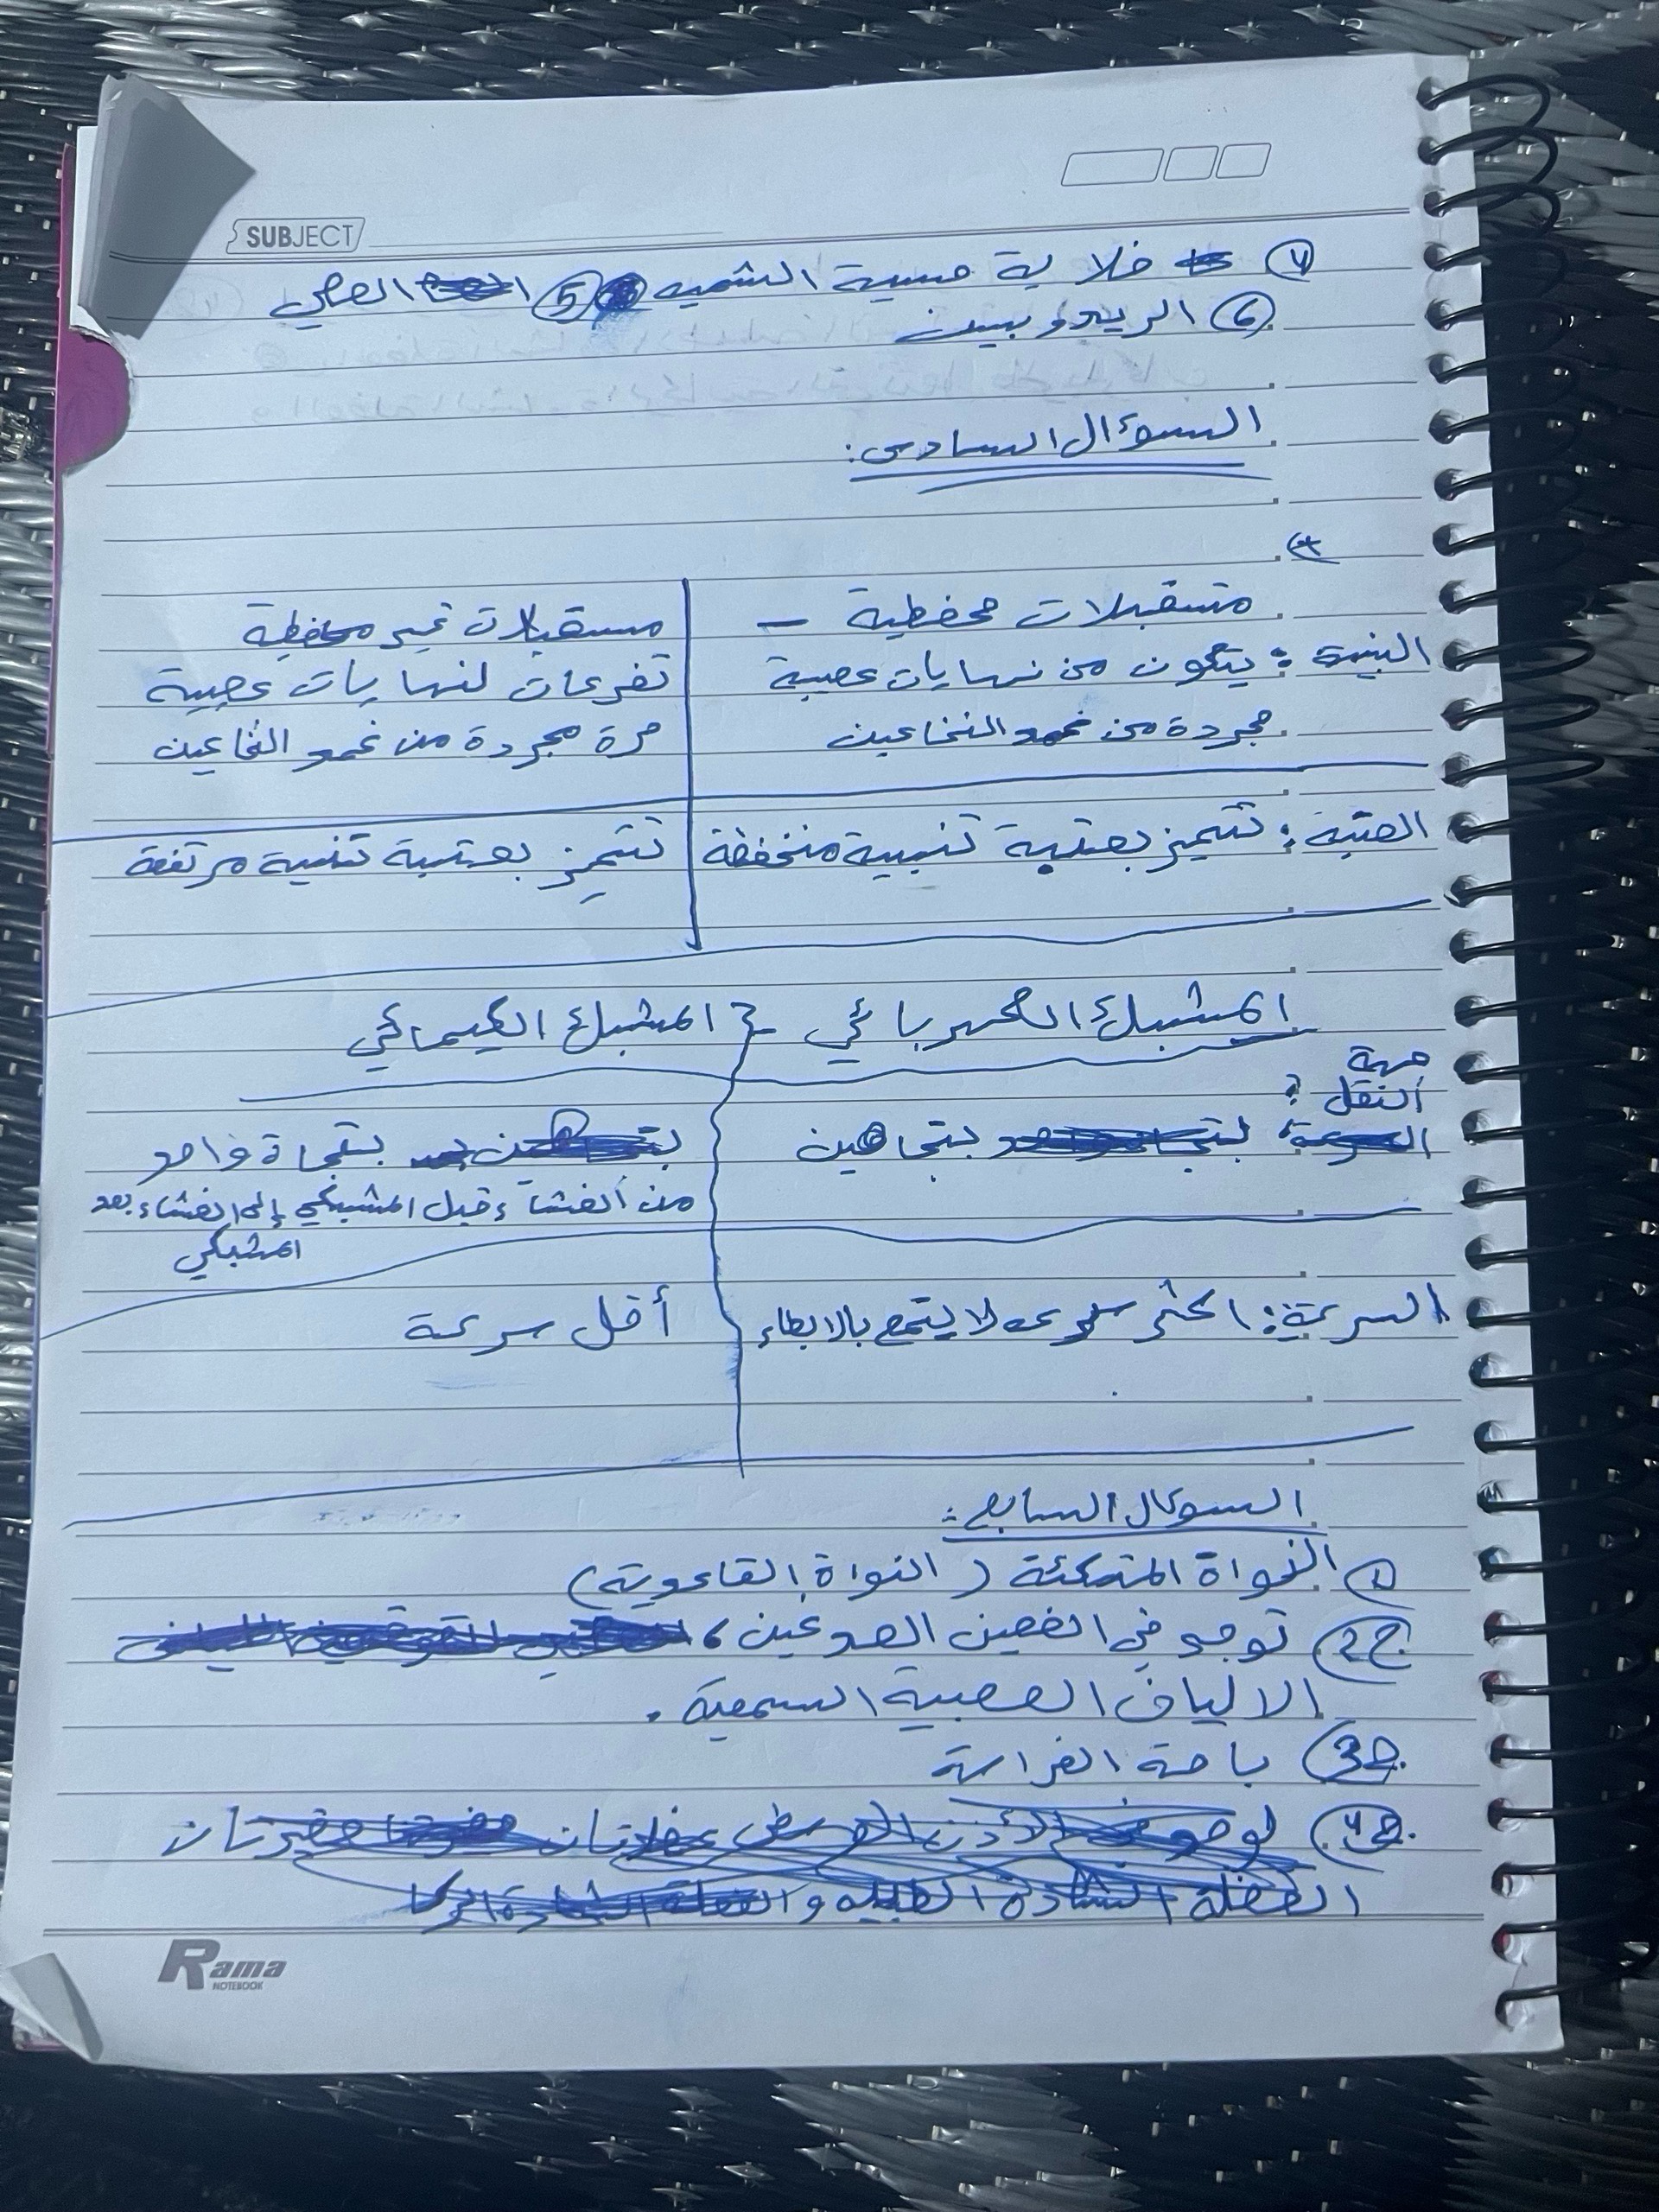 SUBJECT
④ خلاية حسية الشمية ⑤ العصي
⑥ الريدوبسين
السوءال السادس:
متسقبلات محفظية – مستقبلات غير محفظية
البنية: يتكون من نهايات عصبية تفرعات لنهايات عصبية
مجردة من غمد النخاعين حرة مجردة من غمد النخاعين
العتبة: تتميز بعتبة تنبيية منخفظة تتميز بعتبية تنبية مرتفعة
المشبك الكهربائي المشبك الكيمائي
جهة
النقل:
بتجاهين بتجاة واحد
من الغشاء قبل المشبكي إلى الغشاء بعد
المشبكي
السرعة: اكثر سرعة لا يتمتع بالابطاء أقل سرعة
السوءال السابع:
① النواة المتكئة (النواة القاعدية)
ج2 توجد في الفصين الصدغين،
الالياف العصبية السمعية.
ج3 باحة الفراسة
ج4
العضلة الشادة الطبلية و
Rama
NOTEBOOK